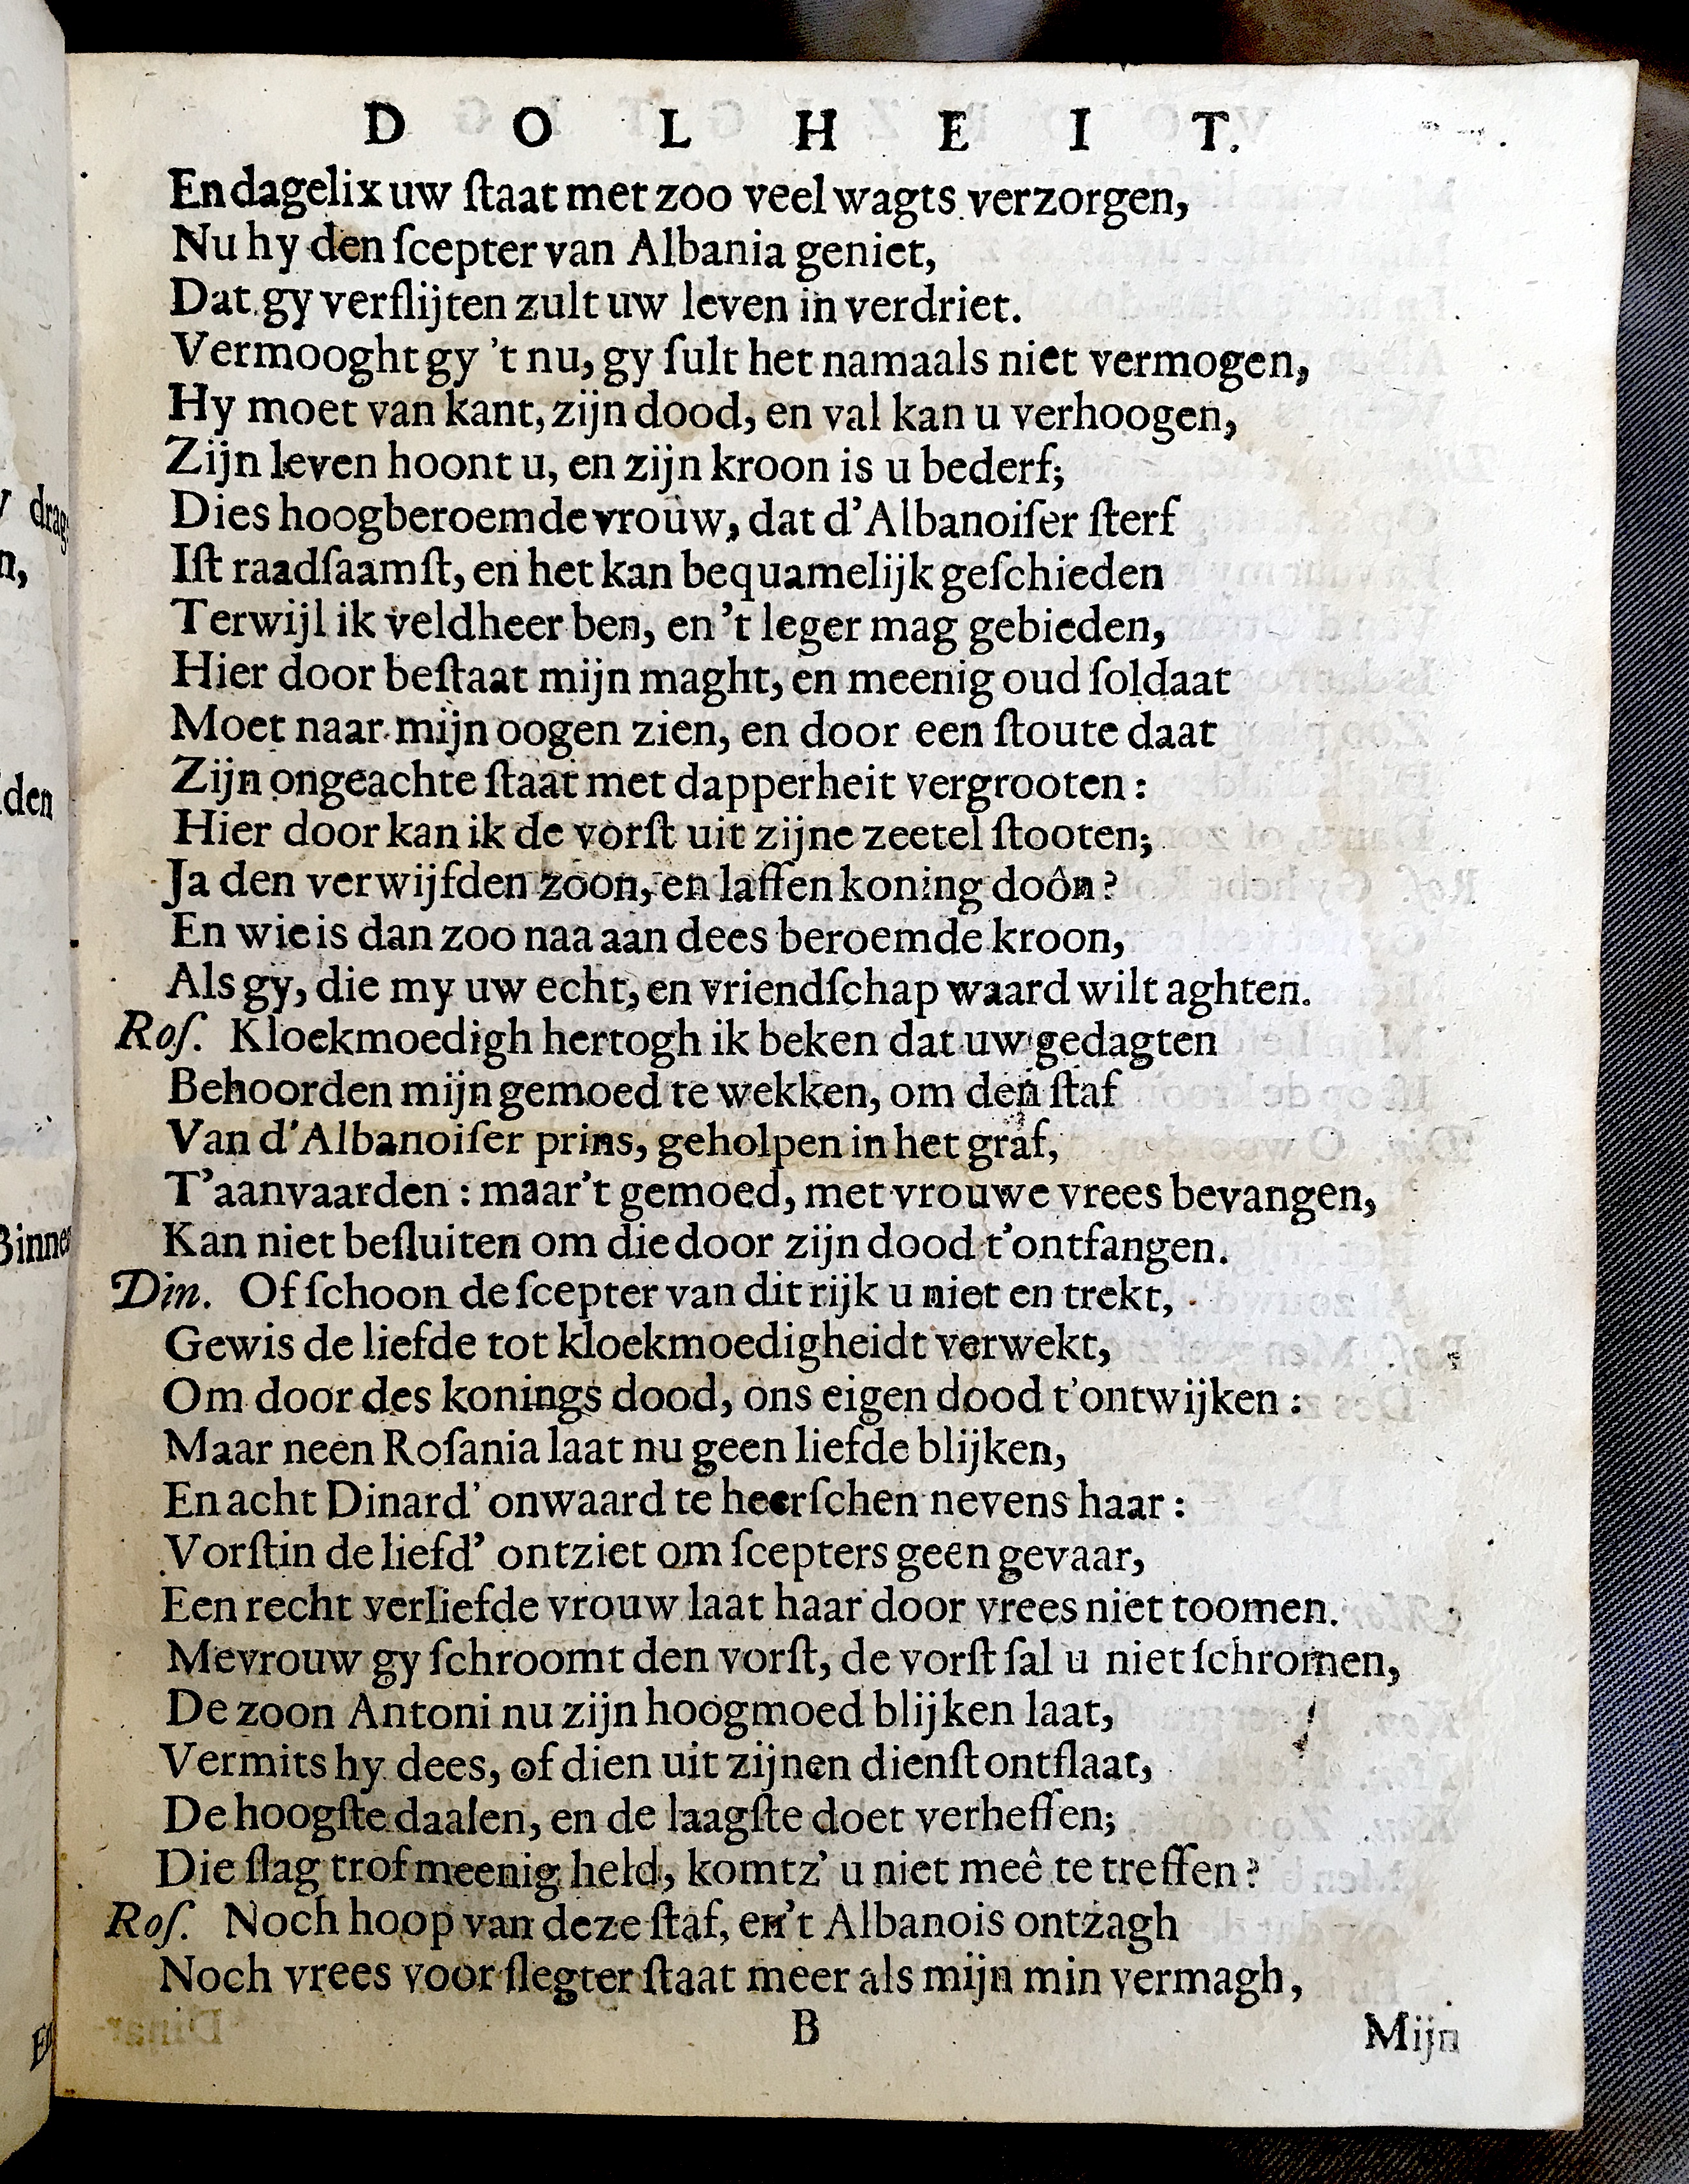 D O L H E I T.
En dagelix uw ſtaat met zoo veel wagts verzorgen,
Nu hy den ſcepter van Albania geniet,
Dat gy verſlijten zult uw leven in verdriet.
Vermooght gy 't nu, gy ſult het namaals niet vermogen,
Hy moet van kant, zijn dood, en val kan u verhoogen,
Zijn leven hoont u, en zijn kroon is u bederf;
Dies hoogberoemde vrouw, dat d'Albanoiſer ſterf
Iſt raadſaamſt, en het kan bequamelijk geſchieden
Terwijl ik veldheer ben, en 't leger mag gebieden,
Hier door beſtaat mijn maght, en meenig oud ſoldaat
Moet naar mijn oogen zien, en door een ſtoute daat
Zijn ongeachte ſtaat met dapperheit vergrooten:
Hier door kan ik de vorſt uit zijne zeetel ſtooten;
Ja den verwijfden zoon, en laffen koning doôn?
En wie is dan zoo naa aan dees beroemde kroon,
Als gy, die my uw echt, en vriendſchap waard wilt aghten.
Roſ. Kloekmoedigh hertogh ik beken dat uw gedagten
Behoorden mijn gemoed te wekken, om den ſtaf
Van d'Albanoiſer prins, geholpen in het graf,
T'aanvaarden: maar't gemoed, met vrouwe vrees bevangen,
Kan niet beſluiten om die door zijn dood t'ontfangen.
Din. Of ſchoon de ſcepter van dit rijk u niet en trekt,
Gewis de liefde tot kloekmoedigheidt verwekt,
Om door des konings dood, ons eigen dood t'ontwijken:
Maar neen Roſania laat nu geen liefde blijken,
En acht Dinard' onwaard te heerſchen nevens haar:
Vorſtin de liefd' ontziet om ſcepters geen gevaar,
Een recht verliefde vrouw laat haar door vrees niet toomen.
Mevrouw gy ſchroomt den vorſt, de vorſt ſal u niet ſchromen,
De zoon Antoni nu zijn hoogmoed blijken laat,
Vermits hy dees, of dien uit zijnen dienſt ontſlaat,
De hoogſte daalen, en de laagſte doet verheffen;
Die ſlag trof meenig held, komtz' u niet meê te treffen?
Roſ. Noch hoop van deze ſtaf, en't Albanois ontzagh
Noch vrees voor ſlegter ſtaat meer als mijn min vermagh,
B
Mijn
drag
n,
den
Binne